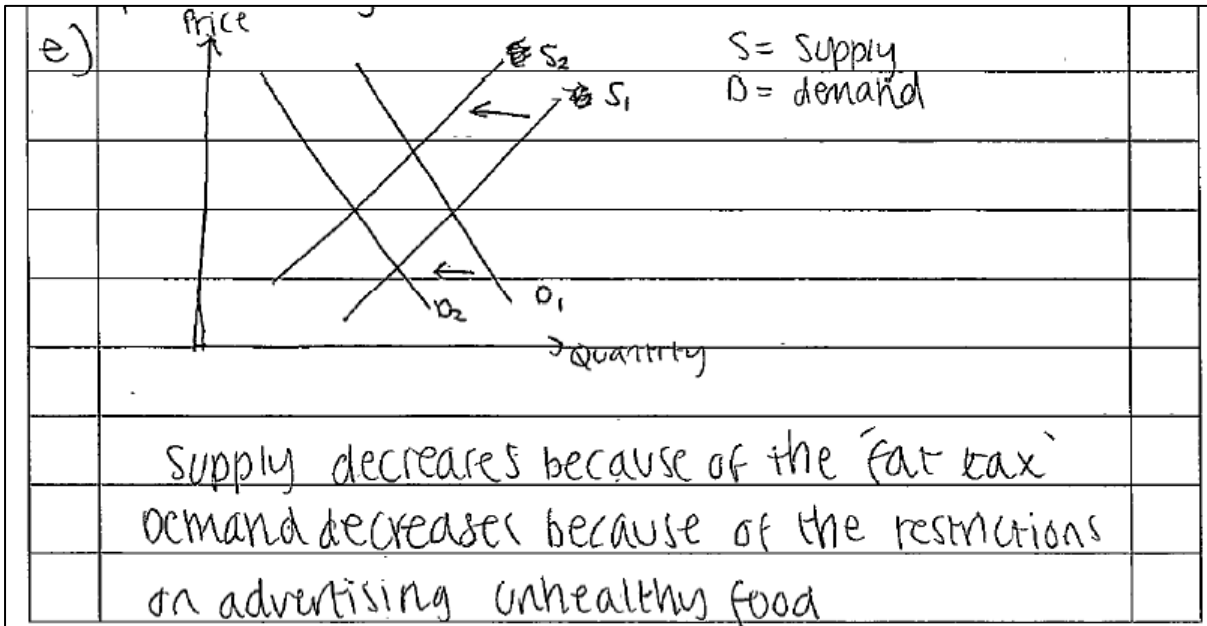 e)
Price
S2
S1
S = Supply
D = demand
D2
D1
Quantity
Supply decreases because of the 'fat tax'
Demand decreases because of the restrictions
on advertising unhealthy food